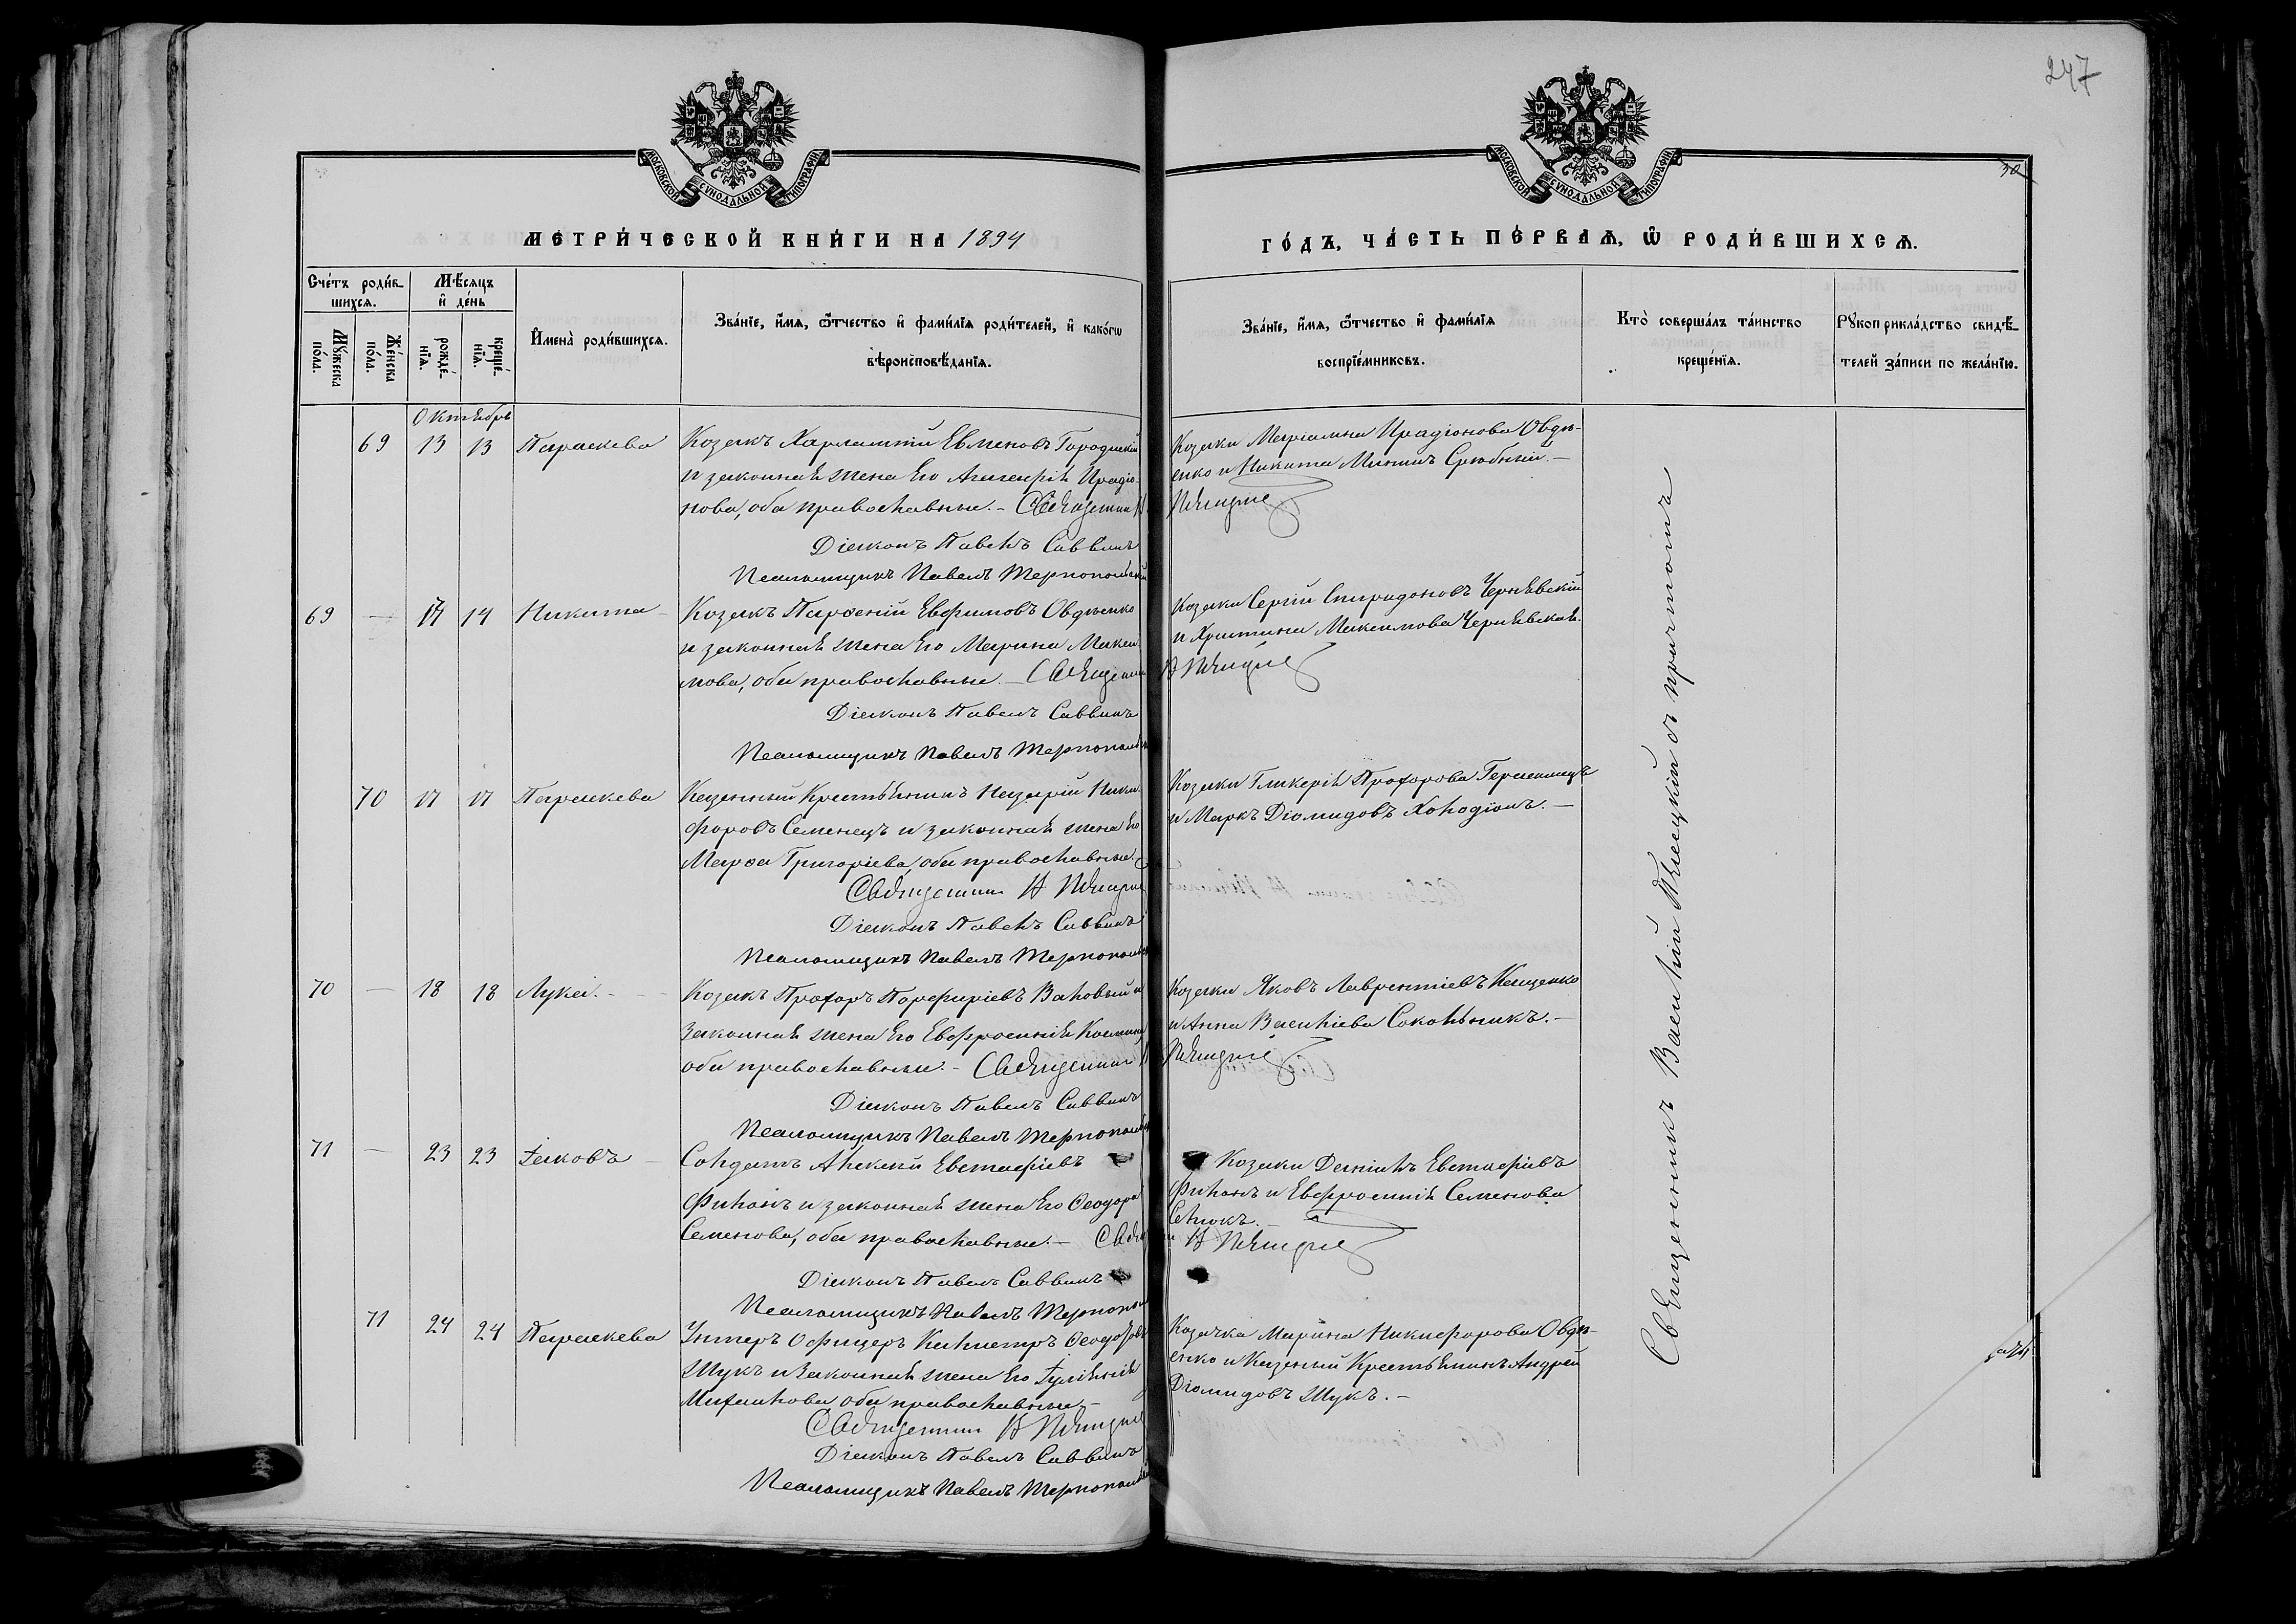 247
30
МОСКОВСКОЙ СѴНОДАЛЬНОЙ ТИПОГРАФІИ
МОСКОВСКОЙ СѴНОДАЛЬНОЙ ТИПОГРАФІИ
МЕТРИ́ЧЕСКОЙ КНИ́ГИ НА 1894
ГО́ДЪ, ЧА́СТЬ ПЕ́РВАѦ, Ѽ РОДИ́ВШИХСѦ.
Сче́тъ роди́в-
шихсѧ.
Мѣ́сѧцъ
и҆ де́нь
Мꙋ́жеска
по́ла.
Же́нска
по́ла.
рожде́-
нїѧ.
креще́-
нїѧ.
И҆мена̀ роди́вшихсѧ.
Зва́нїе, и҆́мѧ, ѻ҆́тчество и҆ фами́лїѧ роди́телей, и҆ како́гѡ
вѣроисповѣ́данїѧ.
Зва́нїе, и҆́мѧ, ѻ҆́тчество и҆ фами́лїѧ
воспрїе́мниковъ.
Кто̀ соверша́лъ та́инство
креще́нїѧ.
Рꙋкоприкла́дство свидѣ́-
телей за́писи по жела́нїю.
Октябрь
69 13 13 Параскева Козакъ Харлампій Евменовъ Городискій
и законная жена его Агликерія Ирадіо-
нова, оба православные. - Священник Н.
Діяконъ Павелъ Саввинъ
Псаломщикъ Павелъ Тернопольскій
Козаки Маріамна Ирадіонова Овдѣ-
енко и Никита Срюбный. -
69 — 14 14 Никита Козакъ Парѳеній Евфимовъ Овдѣенко
и законная жена его Марина Макси-
мова, оба православные. - Священник
Діяконъ Павелъ Саввинъ
Псаломщикъ Павелъ Тернополь
Козаки Сергій Спиридоновъ Чернявскій
и Христина Максимова Чернявская.
70 17 17 Параскева Казенный Крестьянинъ Назарій Ники-
форовъ Семенецъ и законная жена его
Марѳа Григоріева, оба православные.
Священник Н
Діяконъ Павелъ Саввинъ
Псаломщикъ Павелъ Тернополь
Козаки Гликерія Прохорова
и Маркъ Діомидовъ Холодіонъ. -
70 — 18 18 Лука. - Козакъ Прохоръ Порфиріевъ Валовый и
законная жена его Евфросинія
оба православные. - Священник Н
Діяконъ Павелъ Саввинъ
Псаломщикъ Павелъ Тернополь
Козаки Яковъ Лаврентіевъ Кащенко
и Анна Василіева Соколяникъ. -
71 — 23 23 Іаковъ Солдатъ Алексій Евстафіевъ
Филонъ и законная жена его Ѳеодора
Семенова, оба православные. - Свящ
Діяконъ Павелъ Саввинъ
Псаломщикъ Павелъ Тернополь
Козаки Даніилъ Евстафіевъ
Филонъ и Евфросинія Семенова
71 24 24 Параскева Унтеръ Офицеръ Калистръ Ѳеодоровъ
Жукъ и законная жена его Іуліанія
Михаилова оба православные -
Священник Н
Діяконъ Павелъ Саввинъ
Псаломщикъ Павелъ Тернополь
Козачка Марина Никифорова Овдѣ-
енко и Казеный Крестьянинъ Андрей
Діомидовъ Жукъ. -
Священникъ Василій Плесцкій съ причтомъ